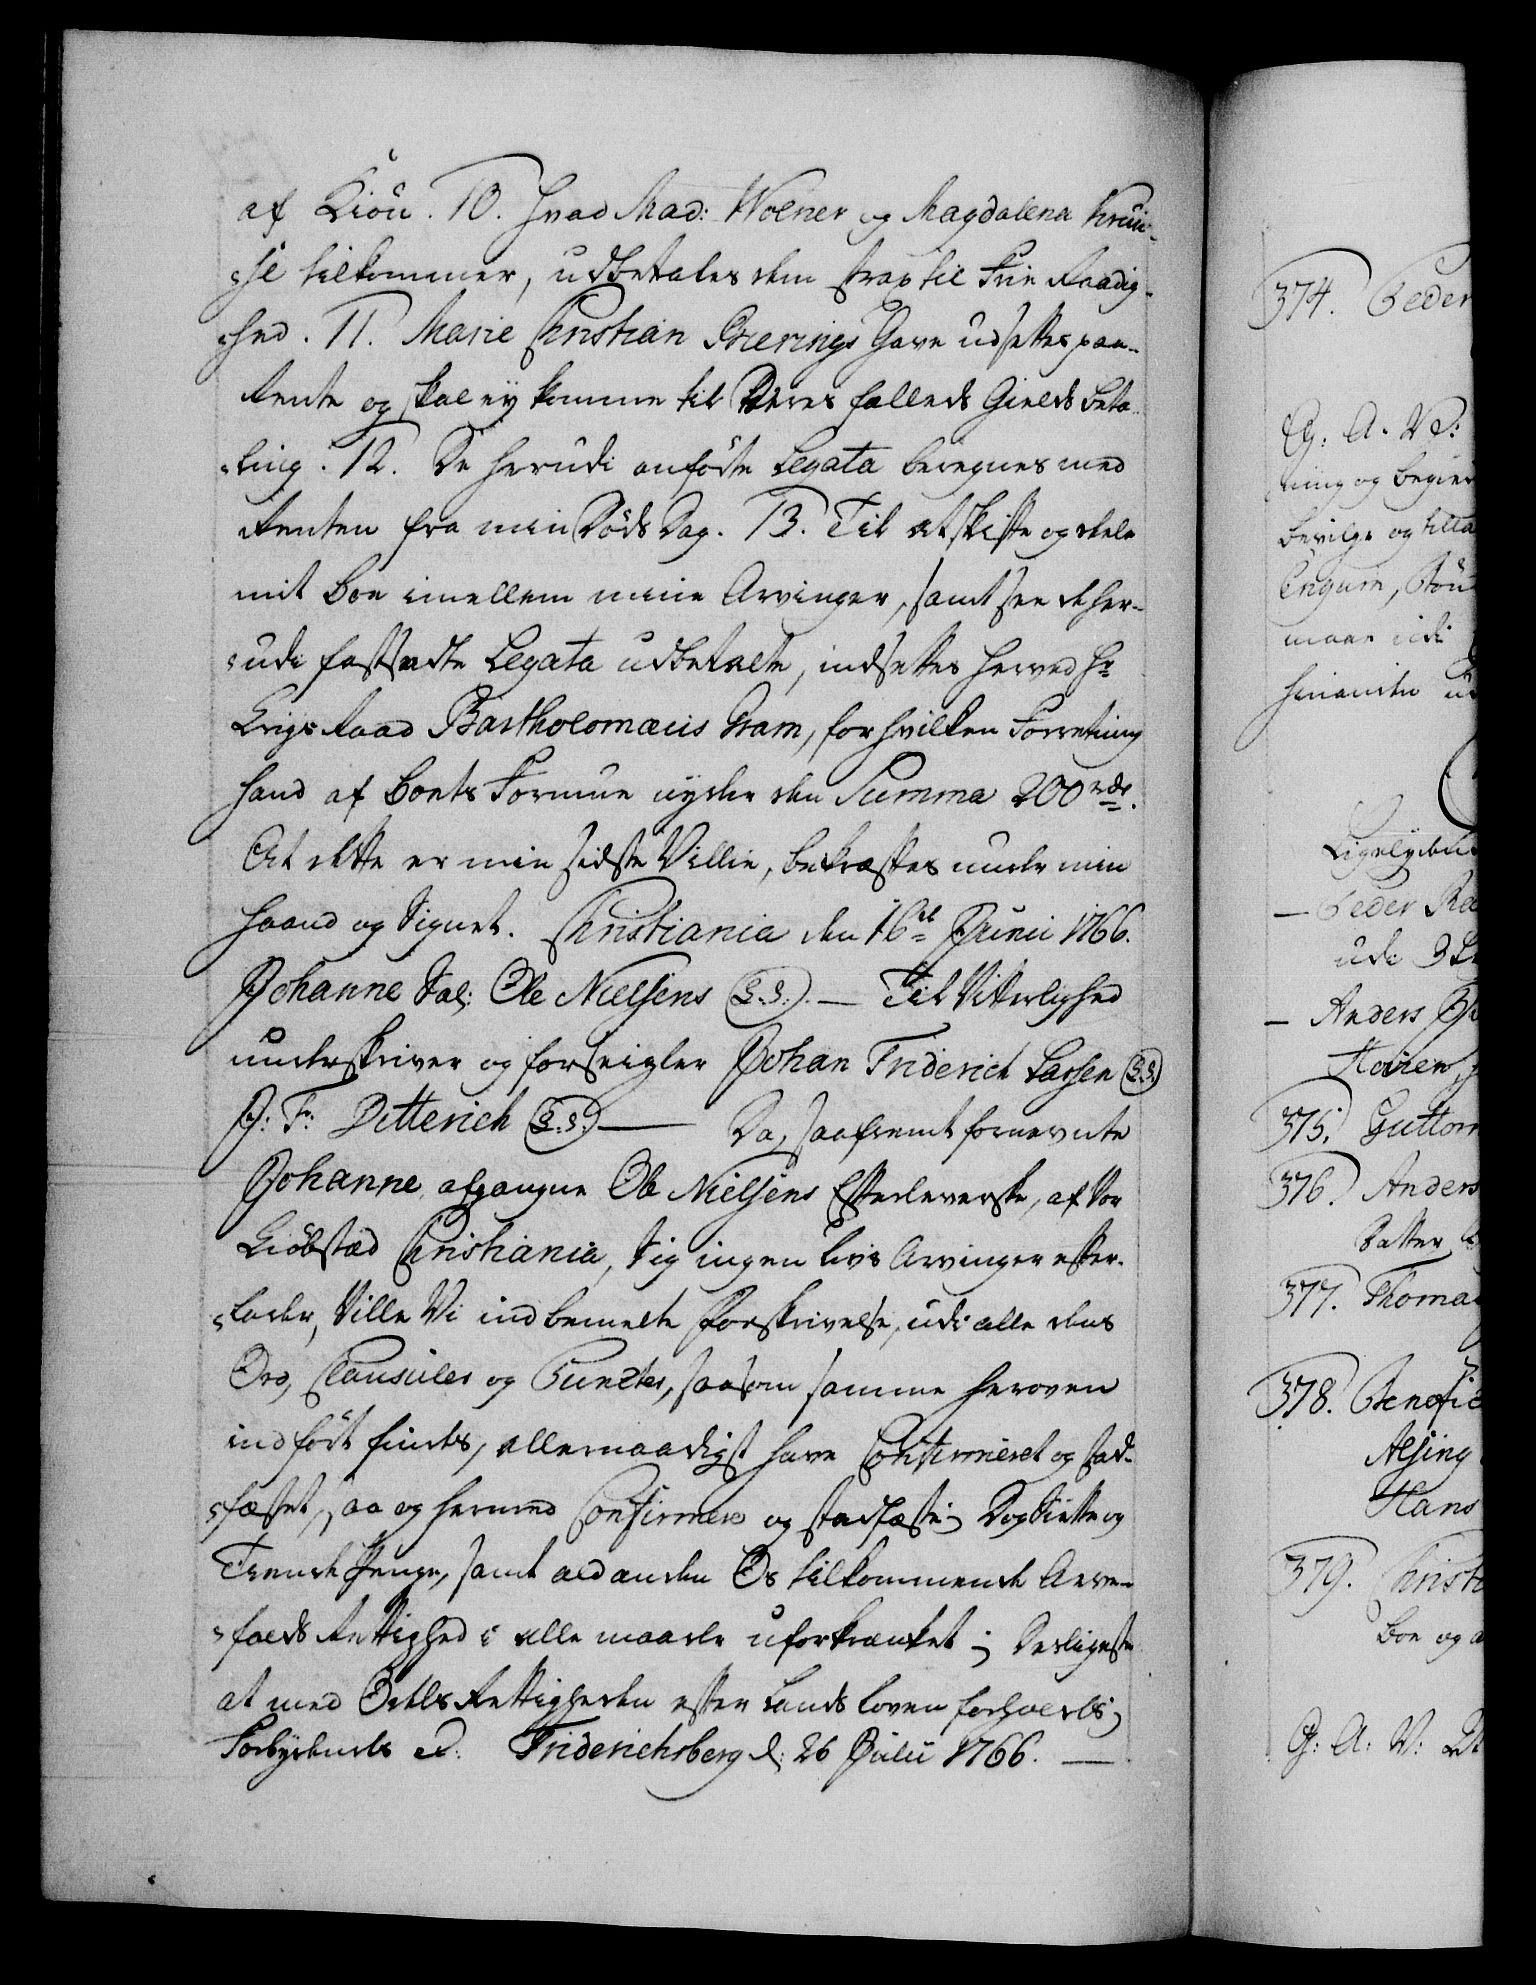 af Kiön. 10. Hvad Mad: Wolner og Magdalena Kruu-
se tilkommer, udbetales dem strax til Frie Raadig-
hed. 11. Marie Christian Stierings Gave udsettes paa
Rente og skal ey komme til Deres fælleds Gields beta-
ling. 12. De herudi anförte Legata beregnes med
Renten fra min Döds Dag. 13. Til at skifte og deele
mit Boe imellem mine Arvinger, samt see de her-
udi fastsadte Legata udbetalte, indsettes herved Hr
Krigs Raad Bartholomæus Gram, for hvilken Forretning
hand af Boets Formue nyder den Summa 200 rdr.
At dette er min sidste Villie, bekræftes under min
Haand og Signet. Christiania den 16de Junii 1766.
Johanne Sal: Ole Nielsens (L.S.) — Til Vitterlighed
underskriver og forseigler Johan Friderich Lassen (L.S.)
J: F: Ditterich (L.S.) — Da, saafremt fornevnte
Johanne, afgangne Ole Nielsens Efterleverske, af Vor
Kiöbstad Christiania, Sig ingen Livs Arvinger efter-
lader, Ville Vi indbemelte Forskrivelse, udi alle dens
Ord, Clausuler og Puncter, saasom samme heroven
indfört findes, allernaadigst have Confirmeret og stad-
fæstet, saa og hermed Confirmere og stadfæste; Dog Siette og
Tiende Penge, samt ald anden Os tilkommende Arve-
falds Rettighed i alle maader uforkrænket; Desligeste
at med Odels Rettigheden efter Lands Loven forholdes;
Forbydendes etc. Friderichsberg d: 26 Julii 1766. —
374. Peder
G: A. V:
ning og begier
bevilge og tilla
maae udi
Ligelydende
— Peder
udi 3
— Anders
375. Guttorm
376. Anders
Datter
377. Thomas
378. Benefic
Alsing
Hans
379. Christi
Boe og
G: A: V: